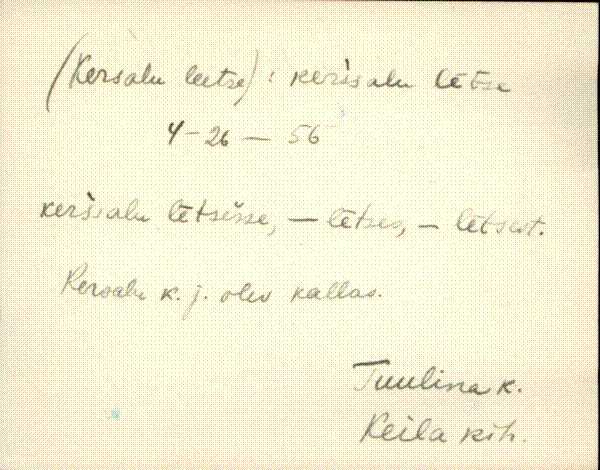 (Kersalu leetse) : kerìsalu lētse
4-26 — 56
kerìsalu lētsèsse, — lētses, — lētsest.
Kersalu k. j. olev kallas.
Tuulina k.
Keila kih.